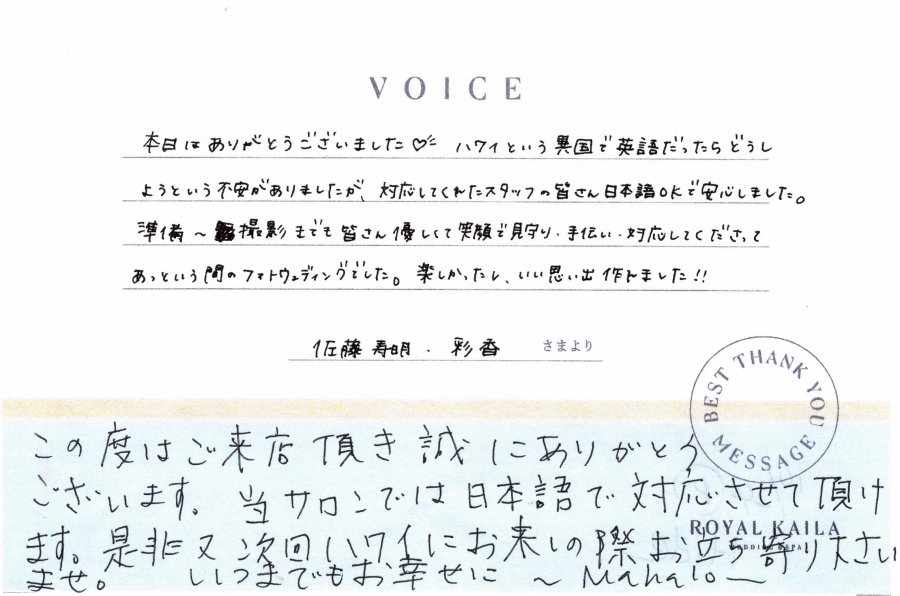 VOICE
本日はありがとうございました♡ ハワイという異国で英語だったらどうし
ようという不安がありましたが、対応してくれたスタッフの皆さん日本語OKで安心しました。
準備〜撮影までも皆さん優しくて笑顔で見守り・手伝い・対応してくださって
あっという間のフォトウェディングでした。楽しかったし、いい思い出作れました!!
佐藤寿明・彩香 さまより
BEST THANK YOU MESSAGE
この度はご来店頂き誠にありがとう
ございます。当サロンでは日本語で対応させて頂け
ROYAL KAILA
WEDDING &SPA
ます。是非又次回ハワイにお来しの際お立ち寄り下さい
ませ。 いつまでもお幸せに 〜Mahalo〜